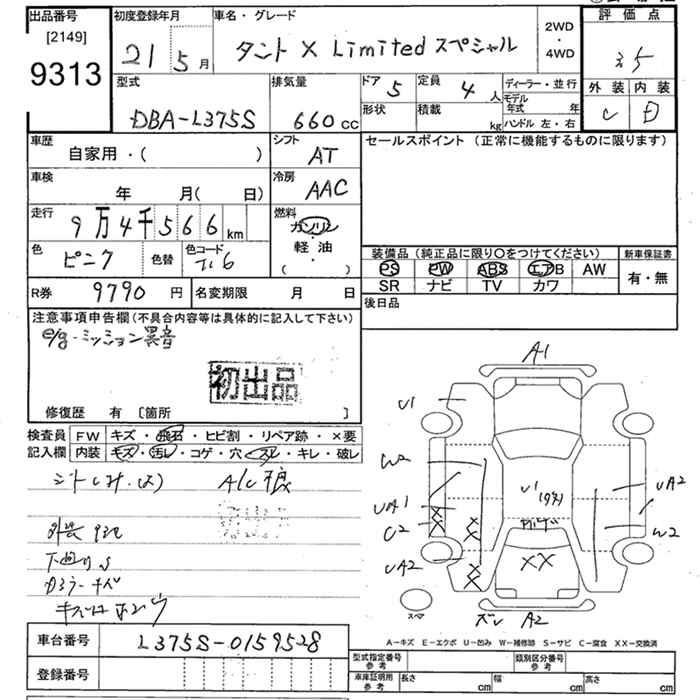 出品番号 初度登録年月 車名・グレード 評価点
[2149]
9313
21 5月 タント X Limited スペシャル 2WD・4WD 3.5
型式 排気量 ドア 5 定員 4人 ディーラー・並行 外装 内装
DBA-L375S 660cc 形状 積載 kg モデル年式 年 C D
ハンドル 左・右
車歴 シフト セールスポイント (正常に機能するものに限ります)
自家用・( ) AT
車検 冷房
年 月( 日) AAC
走行 燃料
9万4千566km ガソリン
軽・油
( )
色 ピンク 色替 色コード 装備品 (純正品に限り○をつけてください) 新車保証書
PS PW ABS エアB AW 有・無
SR ナビ TV カワ
R券 9790円 名変期限 月 日 後日品
注意事項申告欄(不具合内容等は具体的に記入して下さい)
e/g・ミッション異音
初出品
修復歴 有 [箇所 ]
検査員 FW キズ・飛石・ヒビ割・リペア跡・×要
記入欄 内装 キズ・汚レ・コゲ・穴・スレ・キレ・破レ
A1
U1
W2
UA1
U1
UA2
C2
W2
UA2
XX
スペア
ズレ A2
A-キズ E-エクボ U-凹み W-補修跡 S-サビ C-腐食 XX-交換済
車台番号 L375S-0159528
登録番号
型式指定番号 参考 類別区分番号 参考
車庫証明用 参考 長さ cm 幅 cm 高さ cm